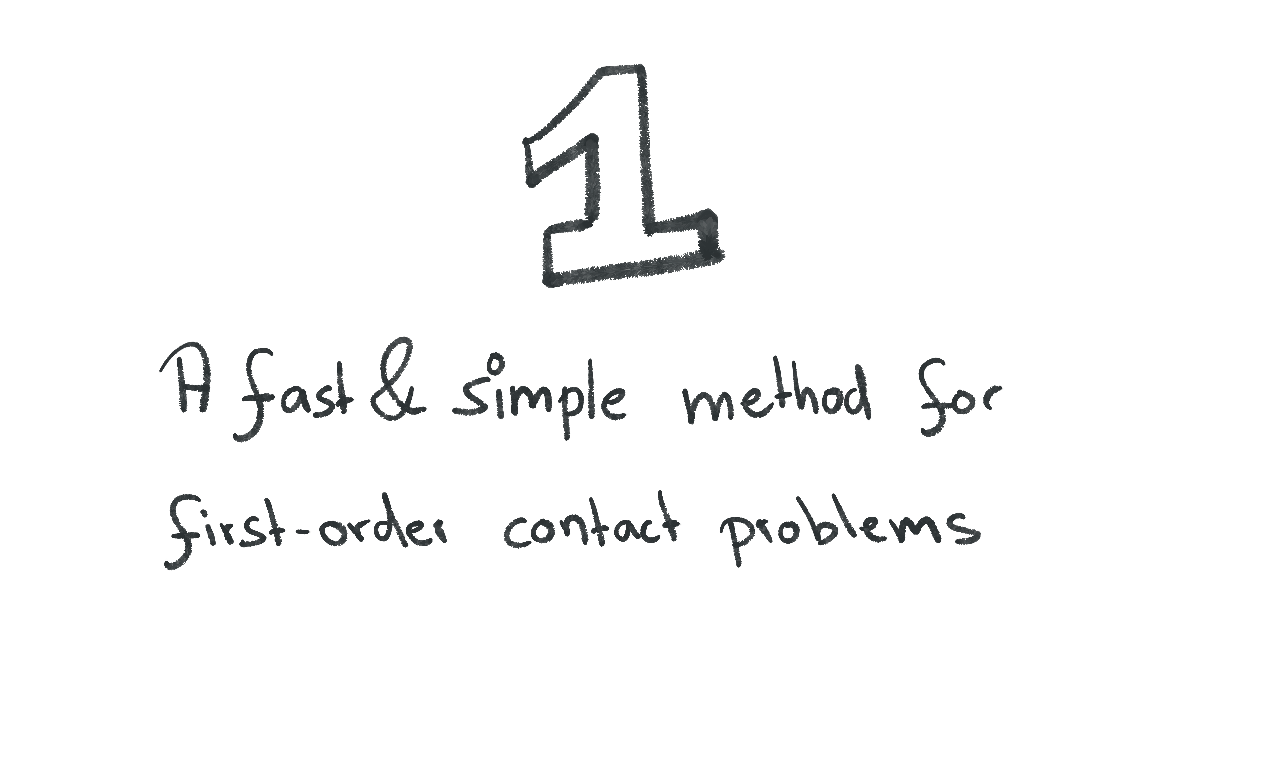 1
A fast & simple method for
first-order contact problems